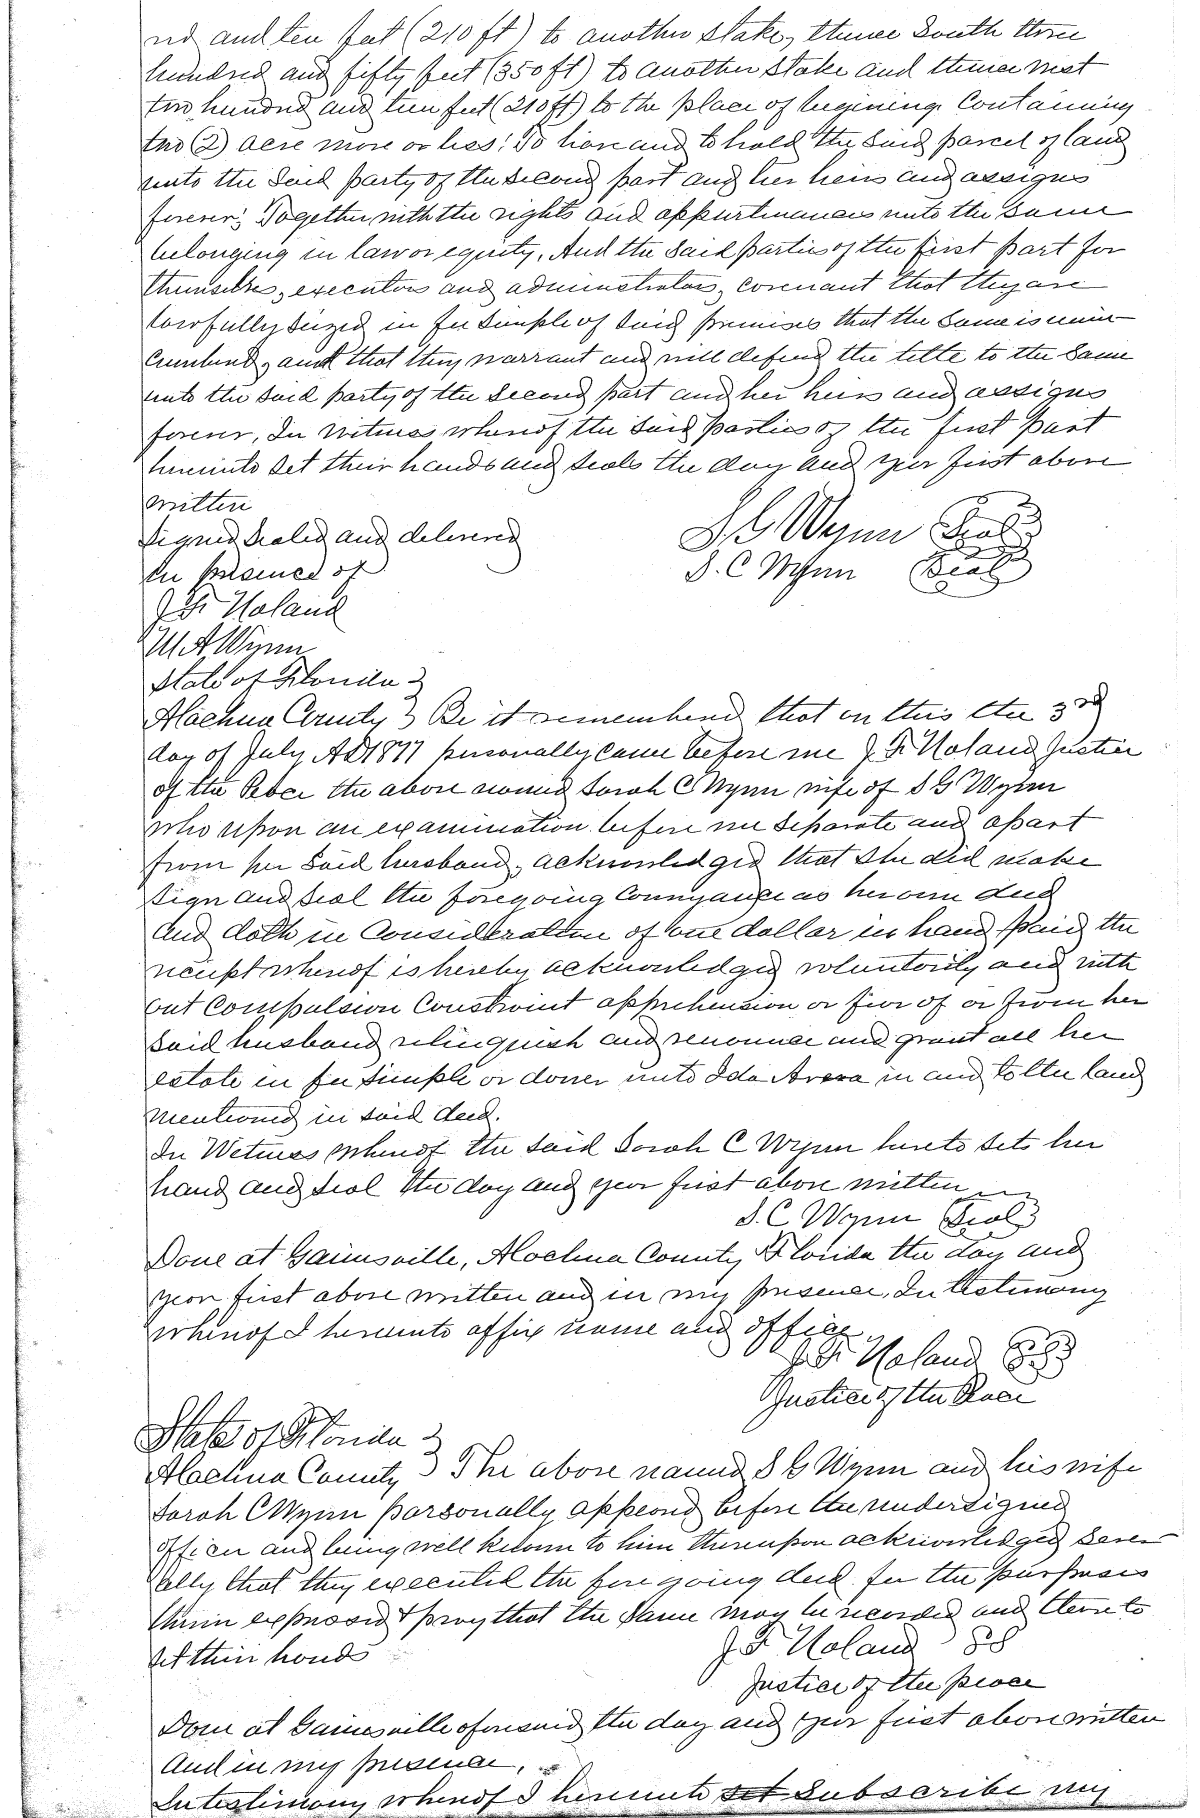 red and ten feet (210 ft) to another stake, thence South three
hundred and fifty feet (350 ft) to another stake and thence west
two hundred and ten feet (210 ft) to the place of begining. Containing
two (2) acre more or less: To have and to hold the said parcel of land
unto the said party of the second part and her heirs and assigns
forever; Together with the rights and appurtenances unto the same
belonging in law or equity, And the said parties of the first part for
themselves, executors and administrators, covenant that they are
lawfully seized in fee simple of said premises that the same is unin
cumbered, and that they warrant and will defend the title to the same
unto the said party of the second part and her heirs and assigns
forever, In witness whereof the said parties of the first part
hereunto set their hands and seals the day and year first above
written
Signed sealed and delivered
S. G Wynn Seal
in presence of
S. C Wynn Seal
J. F. Noland
M A Wynn
State of Florida
Alachua County } Be it remembered that on this the 3rd
day of July AD 1897 personally came before me J. F. Noland Justice
of the Peace the above named Sarah C Wynn wife of S G Wynn
who upon an examination before me separate and apart
from her said husband, acknowledged that she did make
sign and seal the foregoing Conveyance as her own deed
and doth in Consideration of one dollar in hand paid the
receipt whereof is hereby acknowledged voluntarily and with
out Compulsion Constraint apprehension or fear of or from her
said husband relinquish and renounce and grant all her
estate in fee simple or dower unto Ida Avera in and to the land
mentioned in said deed.
In Wetness whereof the said Sarah C Wynn hereto sets her
hand and seal the day and year first above written
S. C Wynn Seal
Done at Gainesville, Alachua County Florida the day and
year first above written and in my presence, In testimony
whereof I hereunto affix name and office
J. F. Noland
Justice of the Peace
State of Florida
Alachua County } The above named S G Wynn and his wife
Sarah C Wynn parsonally appeared before the undersigned
officer and being well known to him thereupon acknowledged sever
ally that they executed the foregoing deed for the purposes
therein expressed & pray that the same may be recorded and thereto
set their hands
J F Noland
Justice of the peace
Done at Gainesville aforesaid the day and year first above written
And in my presence,
In testimony whereof I hereunto set Subscribe my